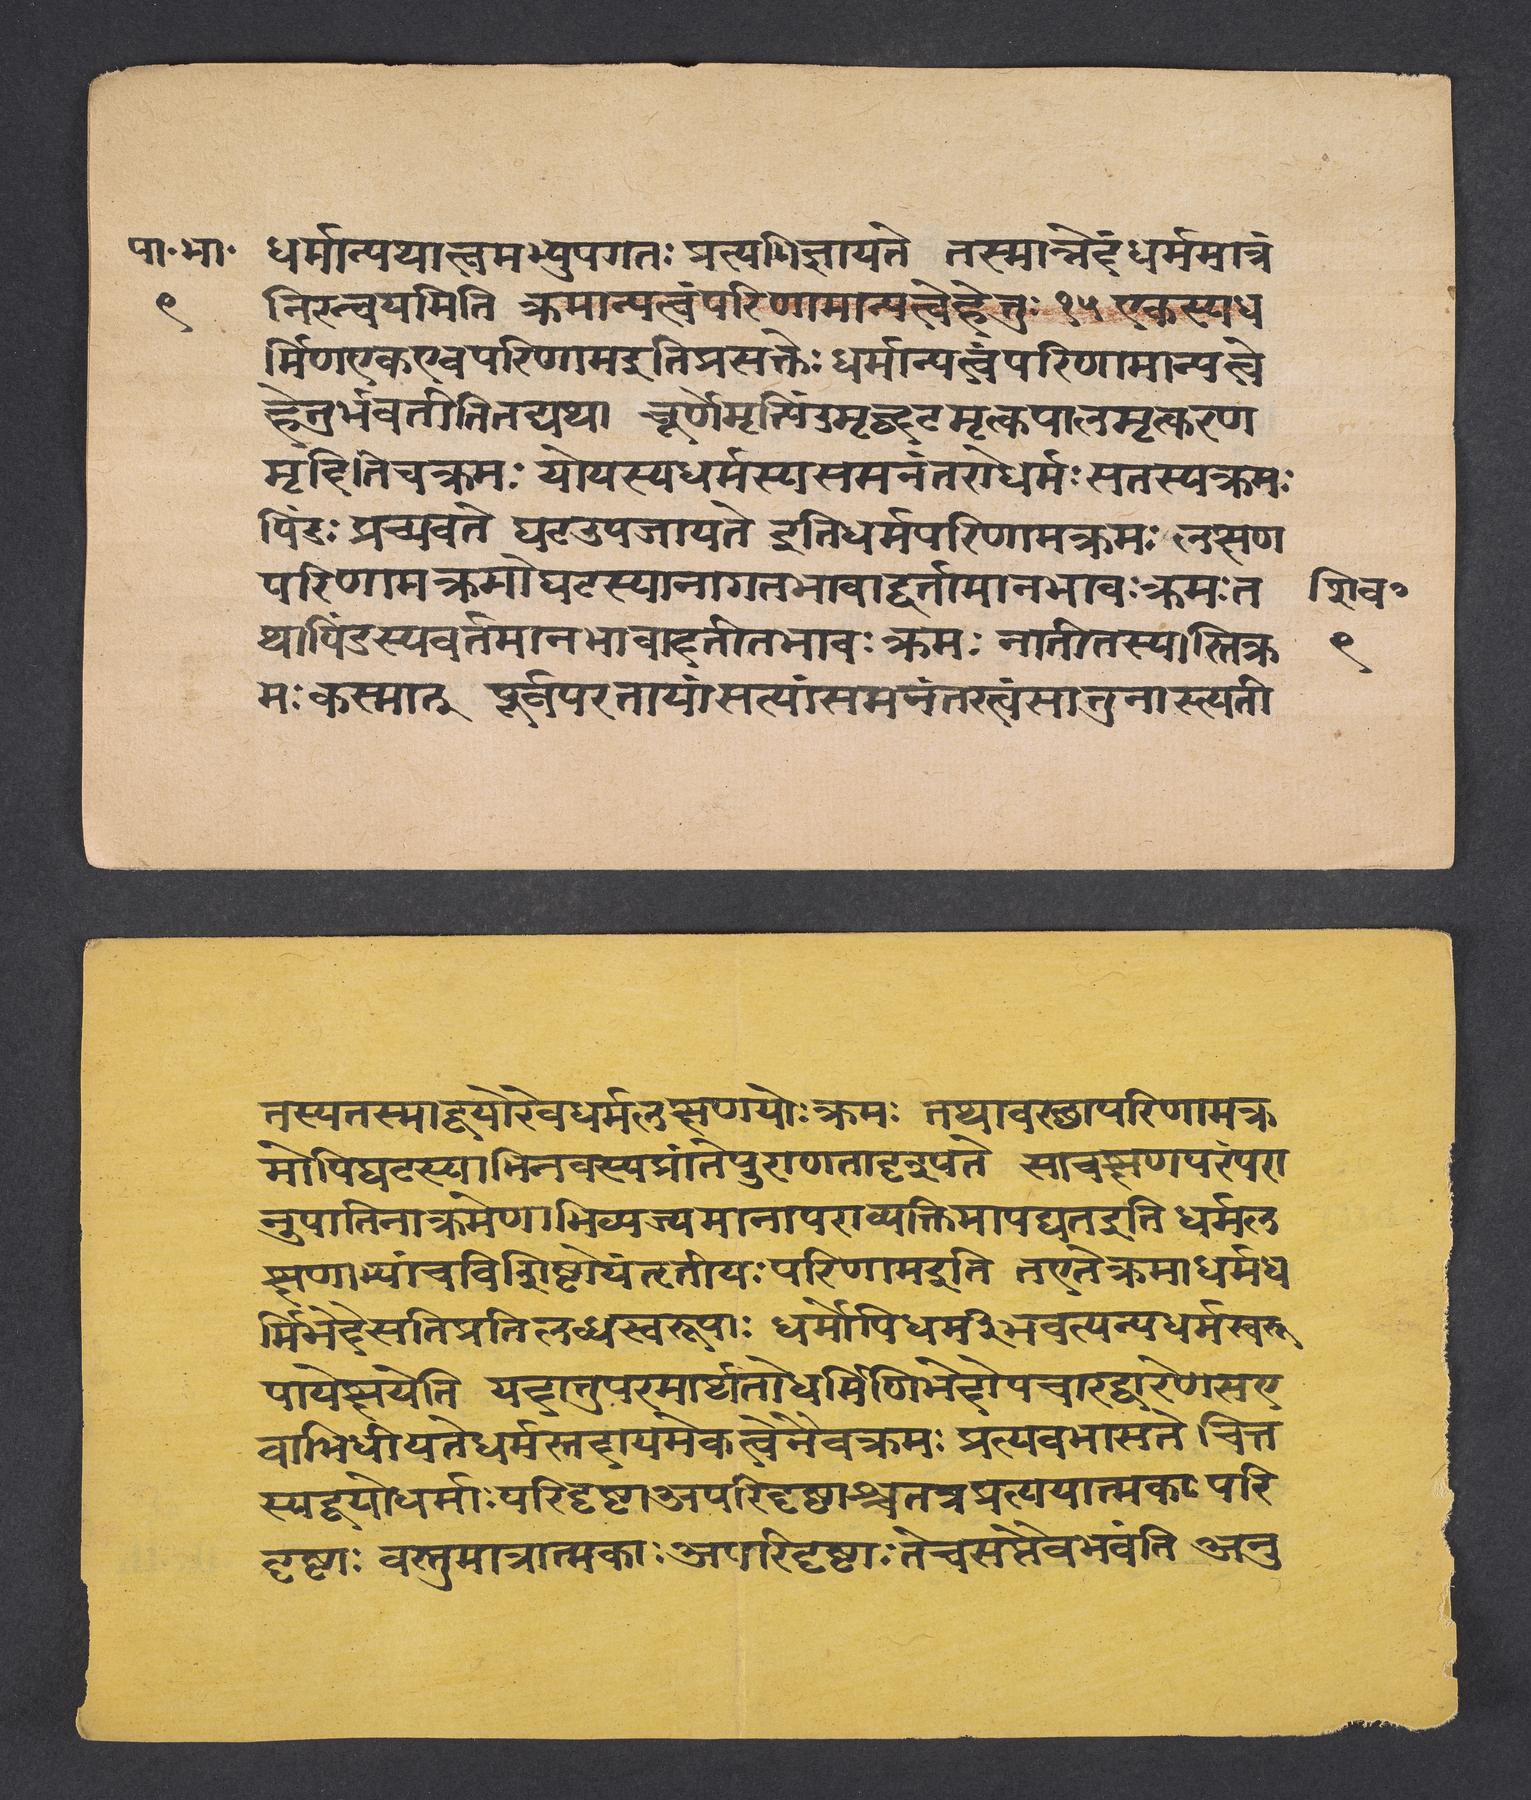 पा॰भा॰ धर्मान्यथात्वमभ्युपगतः प्रत्यभिज्ञायते तस्मान्नेदंधर्ममात्रं
९ निरन्वयमिति क्रमान्यत्वंपरिणामान्यत्वेहेतुः १५ एकस्यध
र्मिणएकएवपरिणामइतिप्रसक्तेः धर्मान्यत्वंपरिणामान्यत्वे
हेतुर्भवतीतितद्यथा चूर्णमृत्पिंडमृद्घटमृत्कपालमृत्करण
मृदितिचक्रमः योयस्यधर्मस्यसमनंतरोधर्मः सतस्यक्रमः
पिंडः प्रच्यवते घटउपजायते इतिधर्मपरिणामक्रमः लक्षण
परिणामक्रमोघटस्यानागतभावाद्वर्तामानभावःक्रमःत शिव॰
थापिंडस्यवर्तमानभावादतीतभावः क्रमः नातीतस्यास्तिक्र ९
मः कस्मात् पूर्वपरतायांसत्यांसमनंतरत्वंसातुनास्त्यती
तस्यतस्माद्द्वयोरेवधर्मलक्षणयोःक्रमः तथावस्थापरिणामक्र
मोपिघटस्याभिनवस्यप्रांतेपुराणतादृश्यते साचक्षणपरंपरा
नुपातिनाक्रमेणाभिव्यज्यमानापराव्यक्तिमापद्यतइति धर्मल
क्षणाभ्यांचविशिष्टोयंतृतीयःपरिणामइति तएतेक्रमाधर्मध
र्मिभेदेसतिप्रतिलब्धस्वरूपाः धर्मोपिधर्मीभवत्यन्यधर्मस्वरू
पापेक्षयेति यदातुपरमार्थतोधर्मिणिभेदोपचारद्वारेणसए
वाभिधीयतेधर्मस्तदायमेकत्वेनैवक्रमः प्रत्यवभासते चित्त
स्यद्वयोधर्माःपरिदृष्टाअपरिदृष्टाश्चतत्रप्रत्ययात्मकाः परि
दृष्टाः वस्तुमात्रात्मकाःअपरिदृष्टाःतेचसप्तैवभवंति अनु